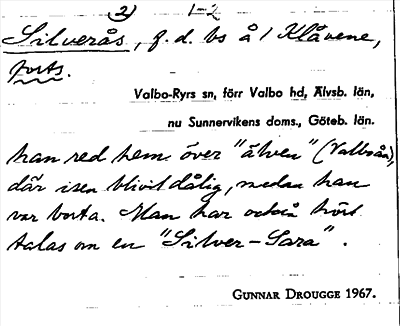 (2) 1-2
Silverås, f.d. bs å / Klåvene,
forts.
Valbo-Ryrs sn, förr Valbo hd, Älvsb. län,
nu Sunnervikens doms., Göteb. län.
han red hem över "älven" (Valboån),
där isen blivit dålig, medan han
var borta. Man har också hört
talas om en "Silver-Sara".
GUNNAR DROUGGE 1967.